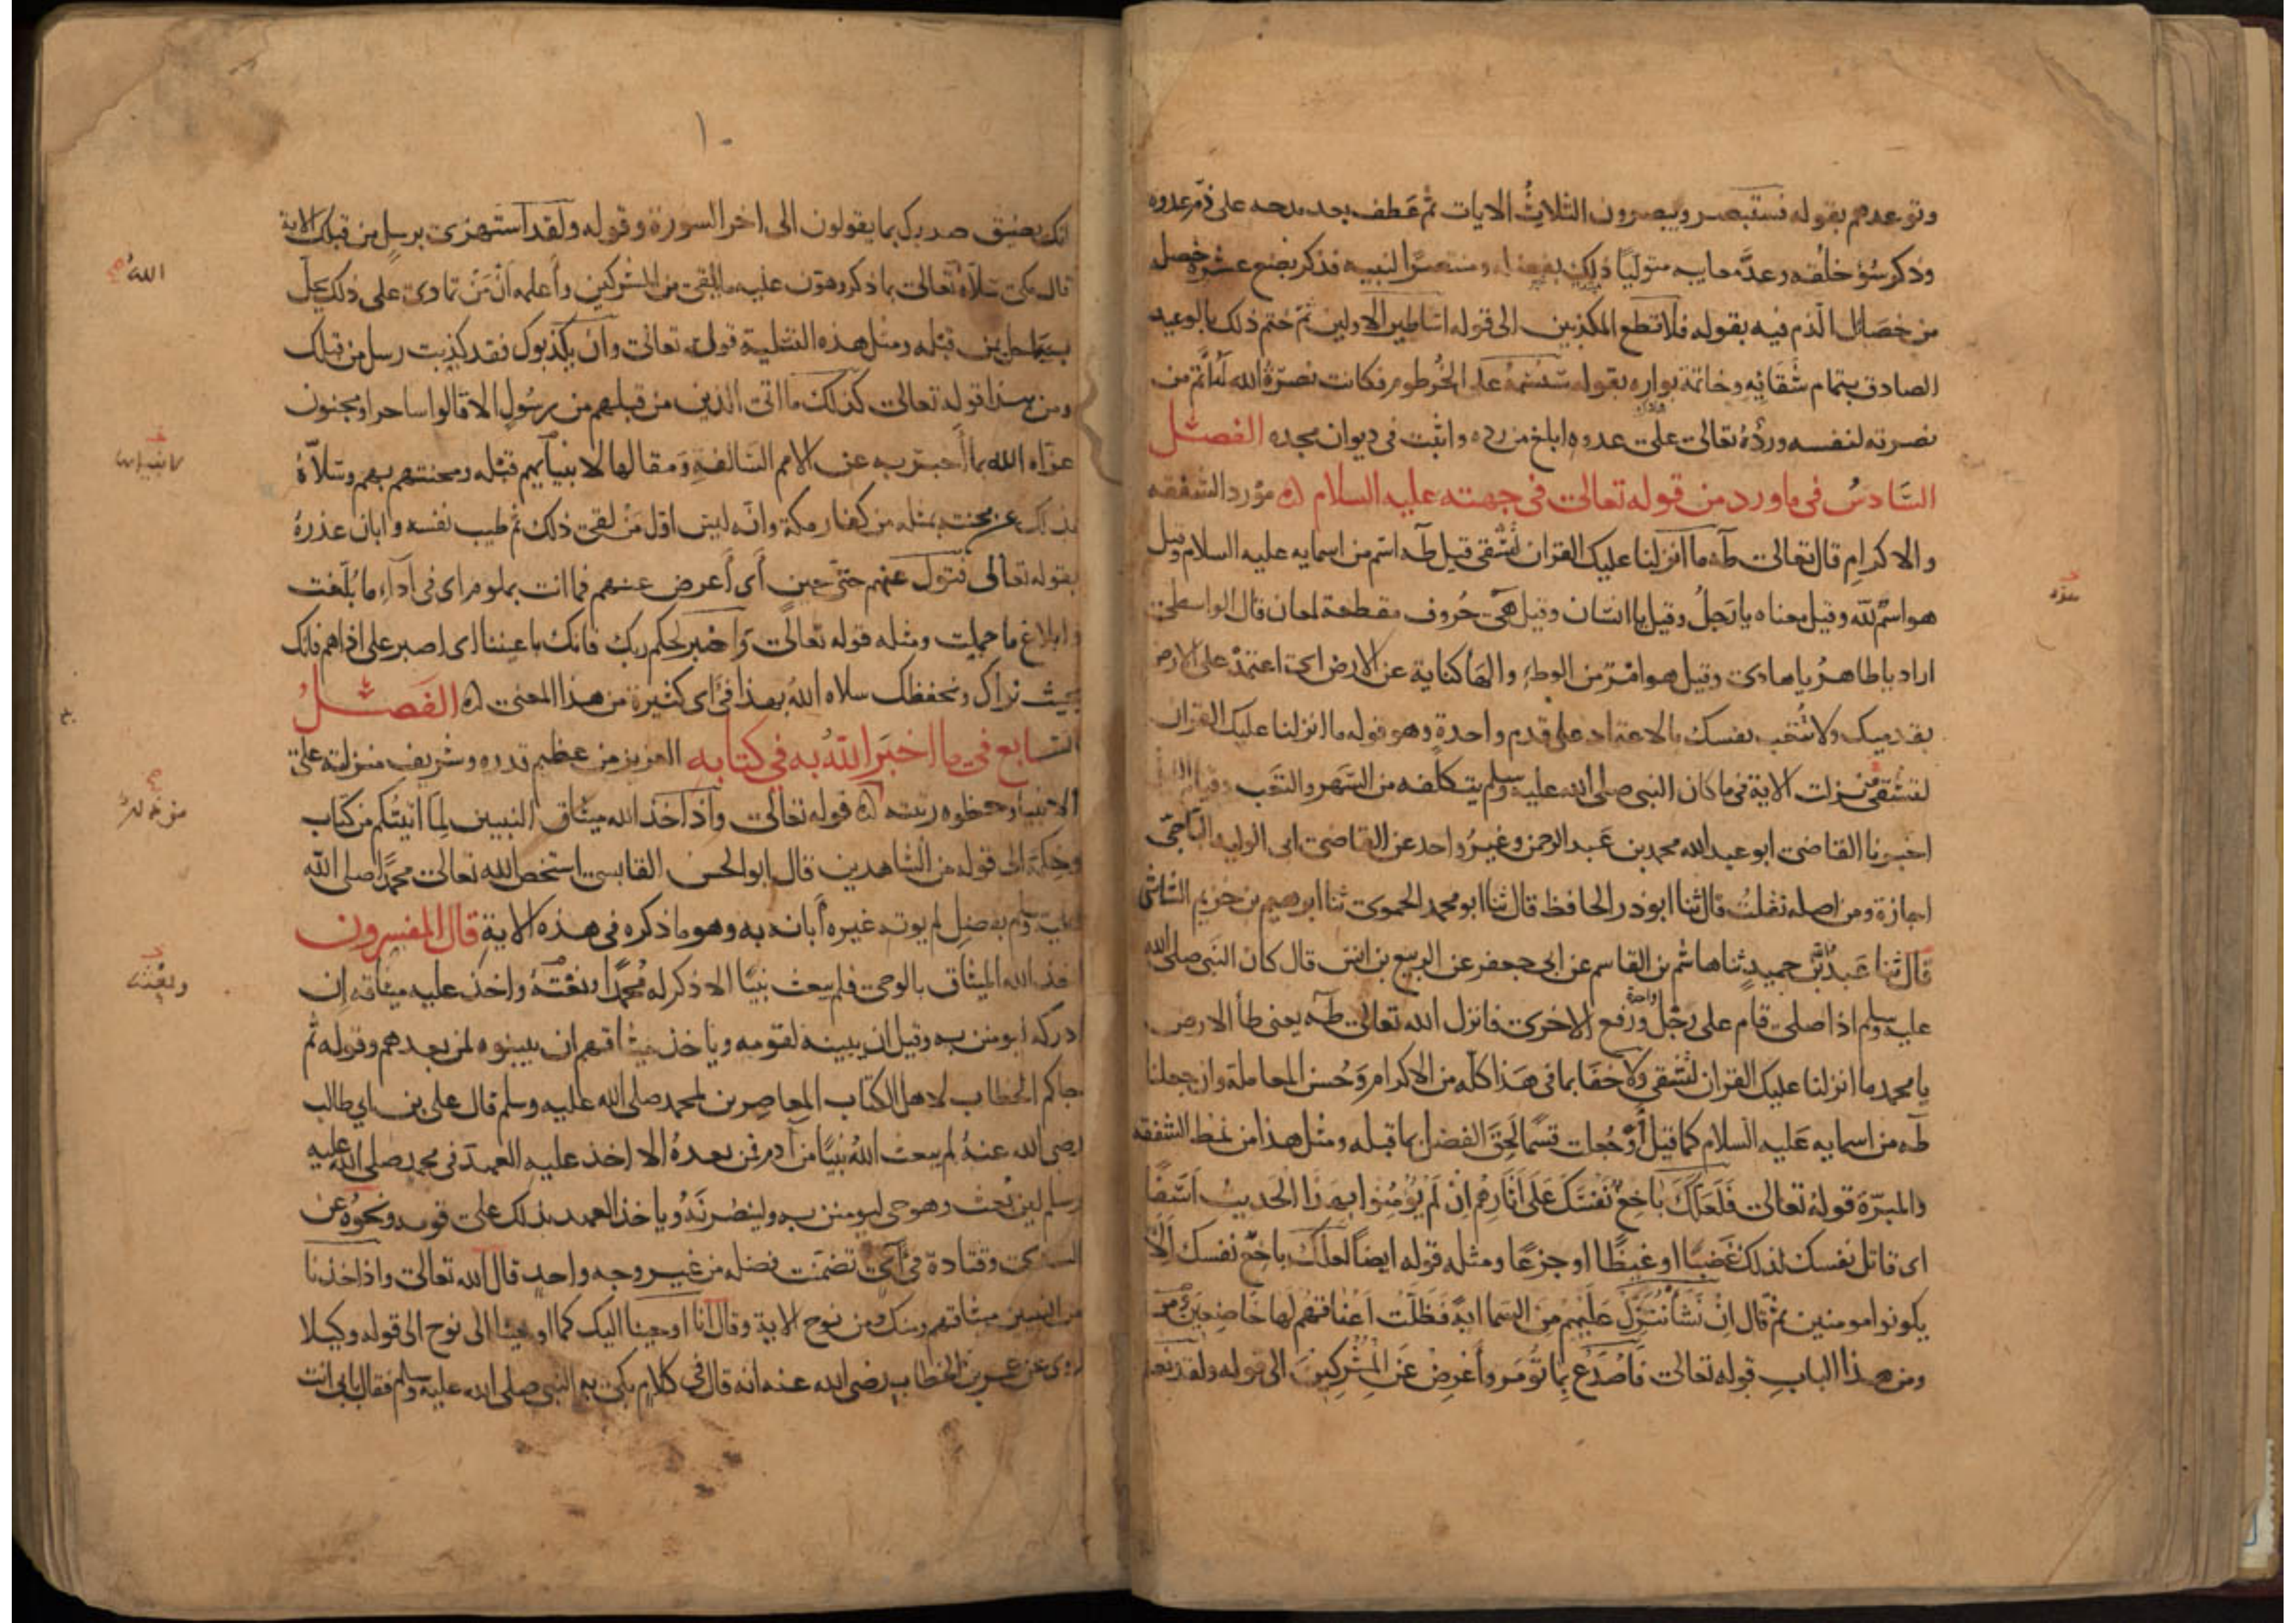 وتوعدهم بقوله فستبصر ويبصرون الثلاث الايات ثم عطف بعد مدحه على ذم عدوه
وذكر سؤ خلقه وعد معايبه متوليا ذلك بفضله ومنتصرا لنبيه فذكر بضع عشرة خصلة
من خصال الذم فيه بقوله فلا تطع المكذبين الى قوله اساطير الاولين ثم ختم ذلك بالوعيد
الصادق بتمام شقائه وخاتمة بواره بقوله سنسمه على الخرطوم فكانت نصرة الله له اتم من
نصرته لنفسه ورده تعالى على عدوه ابلغ من رده واثبت في ديوان مجده الفصل
السادس في ما ورد من قوله تعالى في جهته عليه السلام مورد الشفقه
والاكرام قال تعالى طه ما انزلنا عليك القران لتشقى قيل طه اسم من اسمايه عليه السلام وقيل
هو اسم لله وقيل معناه يا رجل وقيل يا انسان وقيل هي حروف مقطعة لمعان قال الواسطي
اراد يا طاهر يا هادى وقيل هو امر من الوطء والها كناية عن الارض اى اعتمد على الارض
بقدميك ولا تتعب نفسك بالاعتماد على قدم واحدة وهو قوله ما انزلنا عليك القران
لتشقى نزلت الاية في ما كان النبي صلى الله عليه وسلم يتكلفه من السهر والتعب وقيام
اخبرنا القاضي ابو عبد الله محمد بن عبد الرحمن وغير واحد عن القاضي ابى الوليد الباجي
اجازة ومن اصله نقلت قال ثنا ابو ذر الحافظ قال ثنا ابو محمد الحموى ثنا ابرهيم بن خزيم الشاشي
قال ثنا عبد بن حميد ثنا هاشم بن القاسم عن ابى جعفر عن الربيع بن انس قال كان النبى صلى الله
عليه وسلم اذا صلى قام على رجل واحدة ورفع الاخرى فانزل الله تعالى طه يعنى طأ الارض
يا محمد ما انزلنا عليك القران لتشقى ولا خفا بما في هذا كله من الاكرام وحسن المعاملة وان جعلنا
طه من اسمايه عليه السلام كما قيل او جعلت قسما لحق الفضل بما قبله ومثل هذا من نمط الشفقه
والمبرة قوله تعالى فلعلك باخع نفسك على اثارهم ان لم يؤمنوا بهذا الحديث اسفا
اى قاتل نفسك لذلك غضبا او غيظا او جزعا ومثله قوله ايضا لعلك باخع نفسك الا
يكونوا مومنين ثم قال ان نشأ ننزل عليهم من السما اية فظلت اعناقهم لها خاضعين
ومن هذا الباب قوله تعالى فاصدع بما تومر وأعرض عن المشركين الى قوله ولقد نعلم
سره
١٠
انك يضيق صدرك بما يقولون الى اخر السورة وقوله ولقد استهزى برسل من قبلك الاية
قال مكى سلاه تعالى بما ذكر وهون عليه ما يلقى من المشركين وأعلمه ان من تمادى على ذلك يحل
به ما حل بمن قبله ومثل هذه التسلية قوله تعالى وان يكذبوك فقد كذبت رسل من قبلك
ومن هذا قوله تعالى كذلك ما اتى الذين من قبلهم من رسول الا قالوا ساحر او مجنون
عزاه الله بما أخبر به عن الامم السالفة ومقالها لانبيائهم قبله ومحنتهم بهم وسلاه
بذلك عن محنته بمثله من كفار مكة وانه ليس اول من لقى ذلك ثم طيب نفسه وابان عذره
بقوله تعالى فتول عنهم حتى حين أى أعرض عنهم فما انت بملوم اى في اداء ما بلغت
وابلاغ ما حملت ومثله قوله تعالى واصبر لحكم ربك فانك باعيننا اى اصبر على اذاهم فانك
بحيث نراك ونحفظك سلاه الله بهذا في اى كثيرة من هذا المعنى الفصل
السابع في ما اخبر الله به في كتابه العزيز من عظيم قدره وشريف منزلته على
الانبيا وحظوه رتبته قوله تعالى واذ اخذ الله ميثاق النبيين لما اتيتكم من كتاب
وحكمة الى قوله من الشاهدين قال ابو الحسن القابسى استخص الله تعالى محمدا صلى الله
عليه وسلم بفضل لم يوته غيره أبانه به وهو ما ذكره في هذه الاية قال المفسرون
اخذ الله الميثاق بالوحى فلم يبعث نبيا الا ذكر له محمدا ونعته واخذ عليه ميثاقه ان
ادركه ليومنن به وقيل ان يبينه لقومه وياخذ ميثاقهم ان يبينوه لمن بعدهم وقوله ثم
جاكم الخطاب لاهل الكتاب المعاصرين لمحمد صلى الله عليه وسلم قال على بن ابي طالب
رضى الله عنه لم يبعث الله نبيا من آدم فمن بعده الا اخذ عليه العهد في محمد صلى الله عليه
وسلم لين بعث وهو حى ليومنن به ولينصرنه وياخذ العهد بذلك على قومه ونحوه عن
السدى وقتادة في آى تضمنت فضله من غير وجه واحد قال الله تعالى واذ اخذنا
من النبيين ميثاقهم ومنك ومن نوح الاية وقال انا اوحينا اليك كما اوحينا الى نوح الى قوله وكيلا
روى عن عمر بن الخطاب رضى الله عنه انه قال في كلام بكى به النبى صلى الله عليه وسلم فقال بابى انت
الله